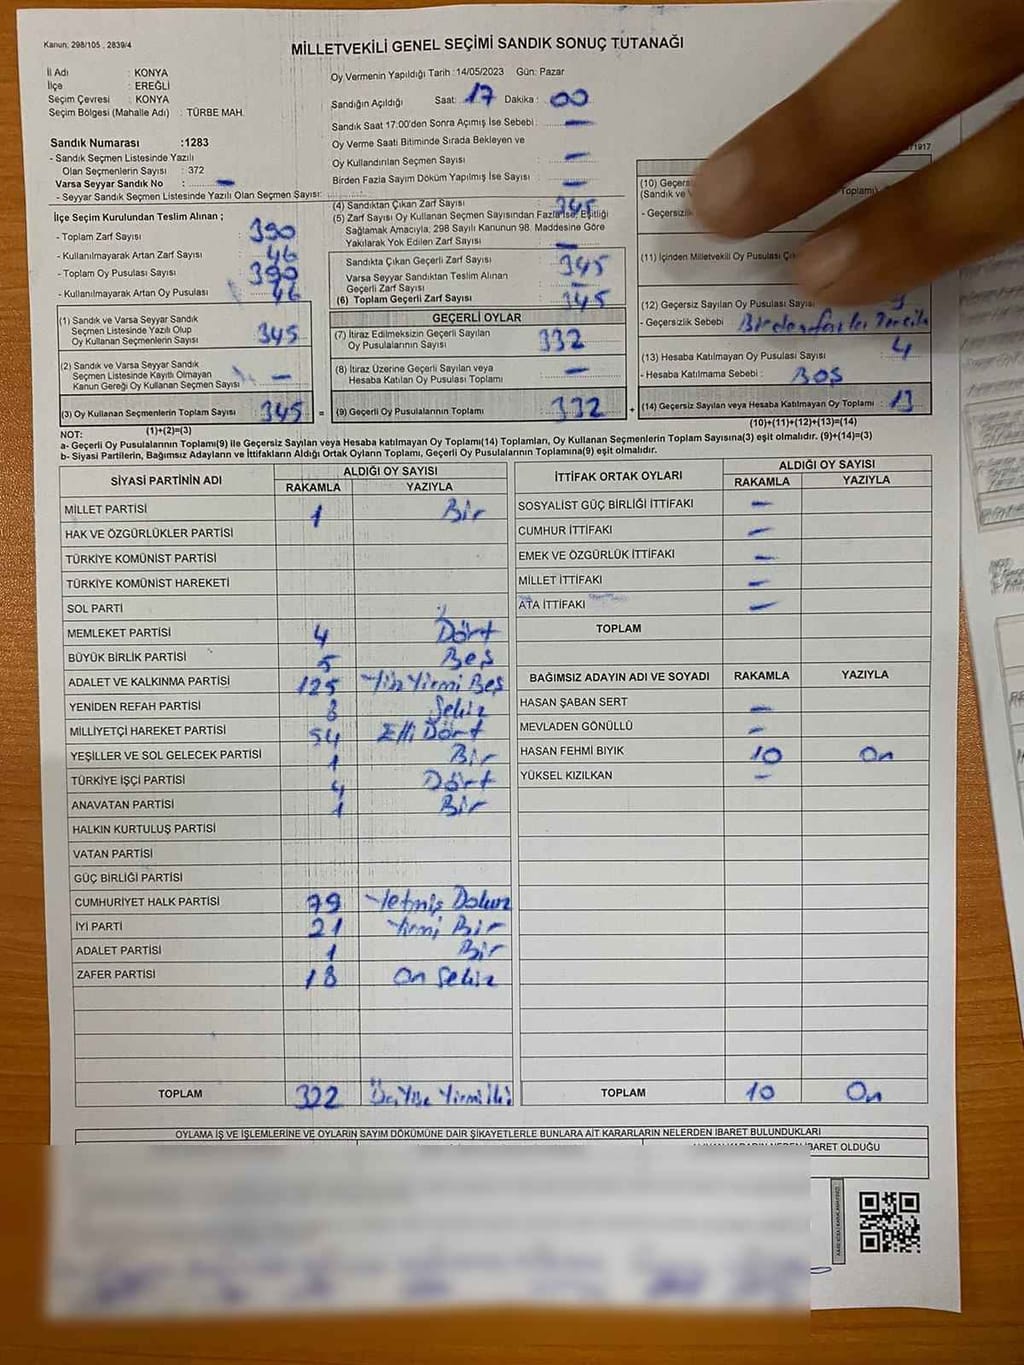 Kanun: 298/105 , 2839/4
MİLLETVEKİLİ GENEL SEÇİMİ SANDIK SONUÇ TUTANAĞI
İl Adı : KONYA
İlçe : EREĞLİ
Seçim Çevresi : KONYA
Seçim Bölgesi (Mahalle Adı) : TÜRBE MAH.
Sandık Numarası :1283
- Sandık Seçmen Listesinde Yazılı
Olan Seçmenlerin Sayısı : 372
Varsa Seyyar Sandık No : -
- Seyyar Sandık Seçmen Listesinde Yazılı Olan Seçmen Sayısı:
Oy Vermenin Yapıldığı Tarih :14/05/2023 Gün: Pazar
Sandığın Açıldığı Saat: 17 Dakika : 00
Sandık Saat 17:00'den Sonra Açımış İse Sebebi : -
Oy Verme Saati Bitiminde Sırada Bekleyen ve
Oy Kullandırılan Seçmen Sayısı : -
Birden Fazla Sayım Döküm Yapılmış İse Sayısı : -
İlçe Seçim Kurulundan Teslim Alınan ;
- Toplam Zarf Sayısı : 390
- Kullanılmayarak Artan Zarf Sayısı : 46
- Toplam Oy Pusulası Sayısı : 390
- Kullanılmayarak Artan Oy Pusulası : 46
(1) Sandık ve Varsa Seyyar Sandık
Seçmen Listesinde Yazılı Olup
Oy Kullanan Seçmenlerin Sayısı : 345
(2) Sandık ve Varsa Seyyar Sandık
Seçmen Listesinde Kayıtlı Olmayan
Kanun Gereği Oy Kullanan Seçmen Sayısı : -
(3) Oy Kullanan Seçmenlerin Toplam Sayısı : 345 =
(1)+(2)=(3)
(4) Sandıktan Çıkan Zarf Sayısı : 345
(5) Zarf Sayısı Oy Kullanan Seçmen Sayısından Fazla İse, Eşitliği
Sağlamak Amacıyla; 298 Sayılı Kanunun 98. Maddesine Göre
Yakılarak Yok Edilen Zarf Sayısı : -
Sandıkta Çıkan Geçerli Zarf Sayısı : 345
Varsa Seyyar Sandıktan Teslim Alınan
Geçerli Zarf Sayısı : -
(6) Toplam Geçerli Zarf Sayısı : 345
GEÇERLİ OYLAR
(7) İtiraz Edilmeksizin Geçerli Sayılan
Oy Pusulalarının Sayısı : 332
(8) İtiraz Üzerine Geçerli Sayılan veya
Hesaba Katılan Oy Pusulası Toplamı : -
(9) Geçerli Oy Pusulalarının Toplamı : 332 +
71917
(10) Geçers
(Sandık ve V Toplamı)
- Geçersizlik
(11) İçinden Milletvekili Oy Pusulası
(12) Geçersiz Sayılan Oy Pusulası Sayısı
- Geçersizlik Sebebi
(13) Hesaba Katılmayan Oy Pusulası Sayısı : 4
- Hesaba Katılmama Sebebi : BOŞ
(14) Geçersiz Sayılan veya Hesaba Katılmayan Oy Toplamı : 13
(10)+(11)+(12)+(13)=(14)
NOT:
a- Geçerli Oy Pusulalarının Toplamı(9) ile Geçersiz Sayılan veya Hesaba katılmayan Oy Toplamı(14) Toplamları, Oy Kullanan Seçmenlerin Toplam Sayısına(3) eşit olmalıdır. (9)+(14)=(3)
b- Siyasi Partilerin, Bağımsız Adayların ve İttifakların Aldığı Ortak Oyların Toplamı, Geçerli Oy Pusulalarının Toplamına(9) eşit olmalıdır.
SİYASİ PARTİNİN ADI ALDIĞI OY SAYISI
RAKAMLA YAZIYLA
MİLLET PARTİSİ 1 Bir
HAK VE ÖZGÜRLÜKLER PARTİSİ
TÜRKİYE KOMÜNİST PARTİSİ
TÜRKİYE KOMÜNİST HAREKETİ
SOL PARTİ
MEMLEKET PARTİSİ 4 Dört
BÜYÜK BİRLİK PARTİSİ 5 Beş
ADALET VE KALKINMA PARTİSİ 125 Yüz Yirmi Beş
YENİDEN REFAH PARTİSİ 8 Sekiz
MİLLİYETÇİ HAREKET PARTİSİ 54 Elli Dört
YEŞİLLER VE SOL GELECEK PARTİSİ 1 Bir
TÜRKİYE İŞÇİ PARTİSİ 4 Dört
ANAVATAN PARTİSİ 1 Bir
HALKIN KURTULUŞ PARTİSİ
VATAN PARTİSİ
GÜÇ BİRLİĞİ PARTİSİ
CUMHURİYET HALK PARTİSİ 79 Yetmiş Dokuz
İYİ PARTİ 21 Yirmi Bir
ADALET PARTİSİ 1 Bir
ZAFER PARTİSİ 18 On Sekiz
TOPLAM 322 Üç Yüz Yirmi İki
İTTİFAK ORTAK OYLARI ALDIĞI OY SAYISI
RAKAMLA YAZIYLA
SOSYALİST GÜÇ BİRLİĞİ İTTİFAKI -
CUMHUR İTTİFAKI -
EMEK VE ÖZGÜRLÜK İTTİFAKI -
MİLLET İTTİFAKI -
ATA İTTİFAKI -
TOPLAM
BAĞIMSIZ ADAYIN ADI VE SOYADI RAKAMLA YAZIYLA
HASAN ŞABAN SERT -
MEVLADEN GÖNÜLLÜ -
HASAN FEHMİ BIYIK 10 On
YÜKSEL KIZILKAN -
TOPLAM 10 On
OYLAMA İŞ VE İŞLEMLERİNE VE OYLARIN SAYIM DÖKÜMÜNE DAİR ŞİKAYETLERLE BUNLARA AİT KARARLARIN NELERDEN İBARET BULUNDUKLARI
İBARET OLDUĞU